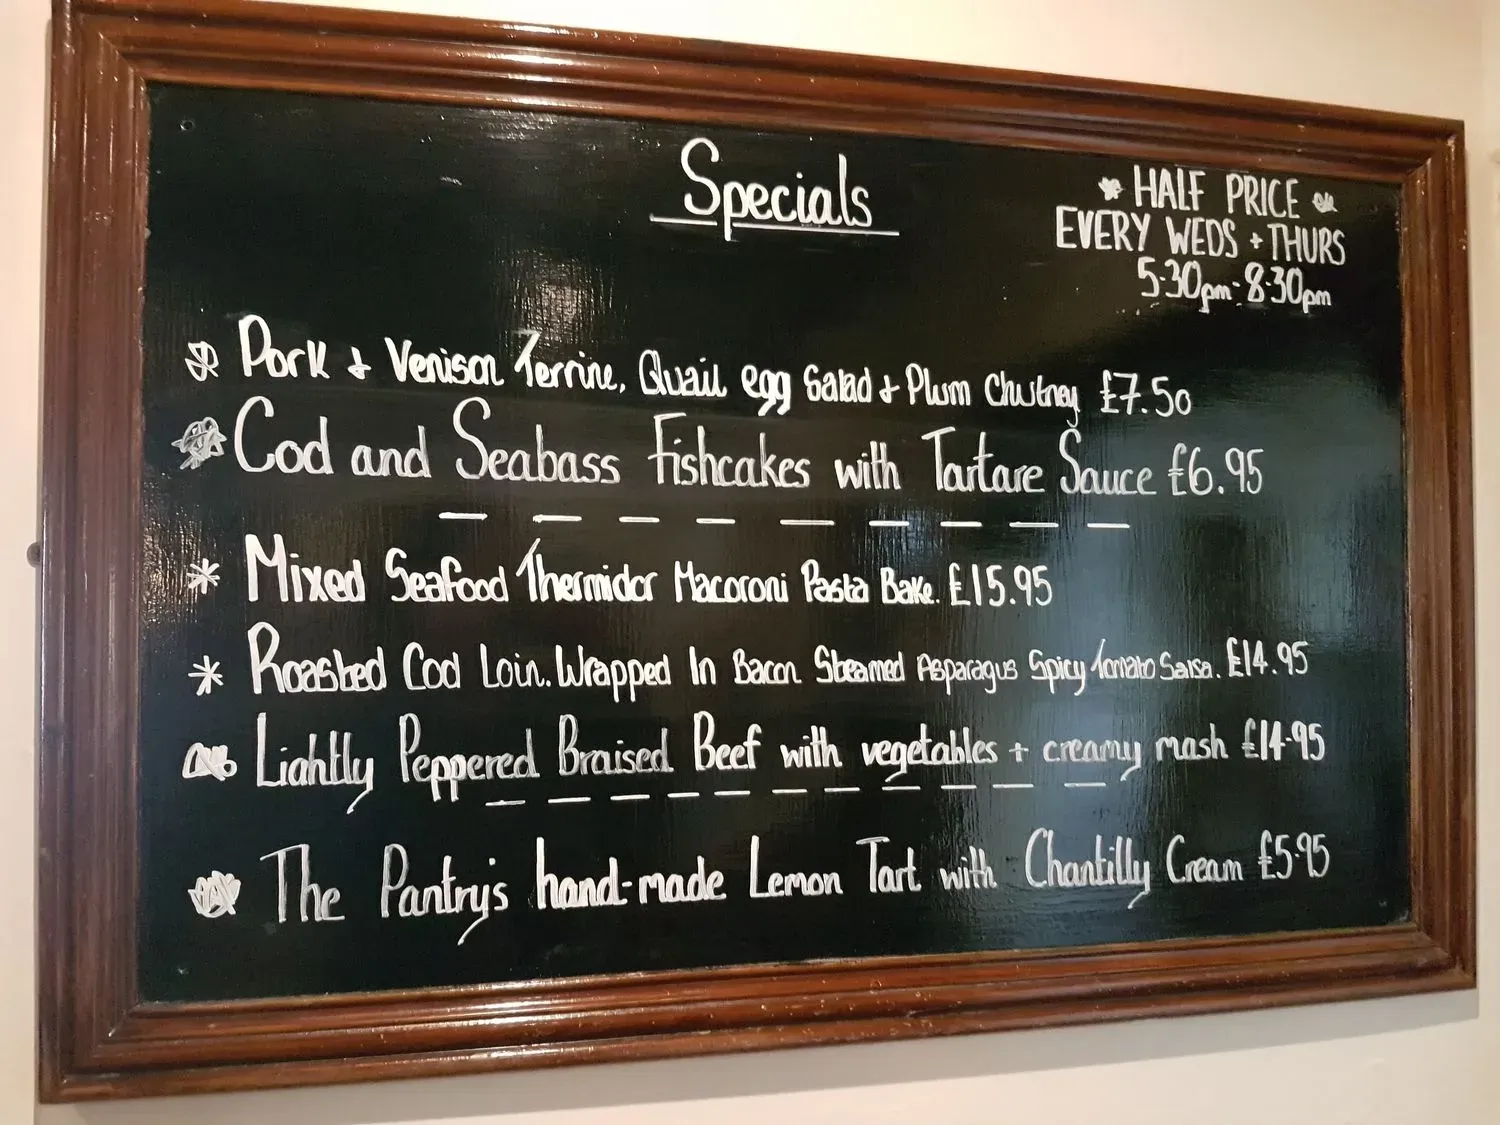 Specials
HALF PRICE
EVERY WEDS + THURS
5·30pm-8·30pm
Pork + Venison Terrine, Quail egg Salad + Plum Chutney £7.50
Cod and Seabass Fishcakes with Tartare Sauce £6.95
Mixed Seafood Thermidor Macaroni Pasta Bake. £15.95
Roasted Cod Loin. Wrapped In Bacon Steamed Asparagus Spicy Tomato Salsa. £14.95
Lightly Peppered Braised Beef with vegetables + creamy mash £14.95
The Pantry's hand-made Lemon Tart with Chantilly Cream £5.95